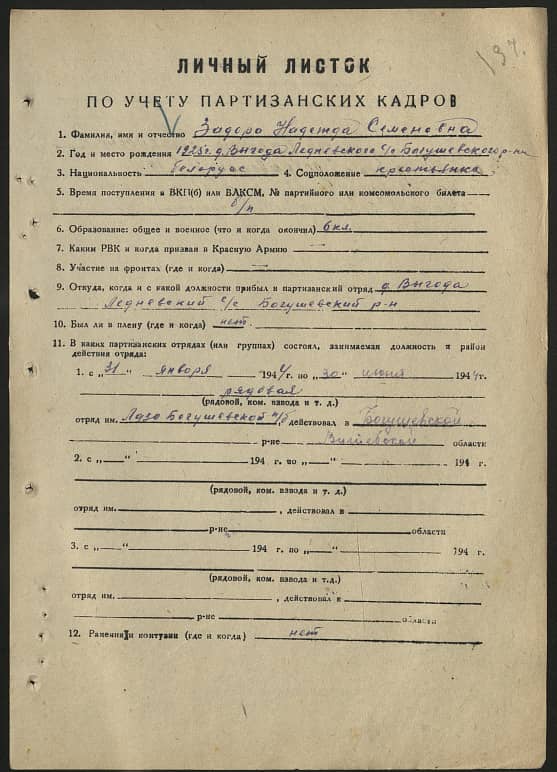 137.
ЛИЧНЫЙ ЛИСТОК
ПО УЧЕТУ ПАРТИЗАНСКИХ КАДРОВ
1. Фамилия, имя и отчество Задора Надежда Семеновна
2. Год и место рождения 1925 г. д. Выгода Ледневского с/с Богушевского р-на
3. Национальность белорус 4. Соцположение крестьянка
5. Время поступления в ВКП(б) или ВЛКСМ, № партийного или комсомольского билета
б/п
6. Образование: общее и военное (что и когда окончил) 6 кл.
7. Каким РВК и когда призван в Красную Армию
8. Участие на фронтах (где и когда)
9. Откуда, когда и с какой должности прибыл в партизанский отряд д. Выгода
Ледневский с/с Богушевский р-н
10. Был ли в плену (где и когда) нет.
11. В каких партизанских отрядах (или группах) состоял, занимаемая должность и район
действия отряда:
1. с „31“ января 1944 г. по „30“ июня 1944 г.
рядовая
(рядовой, ком. взвода и т. д.)
отряд им. Лазо Богушевской п/б действовал в Богушевской
р-не Витебской области
2. с „ “ 194 г. по „ “ 194 г.
(рядовой, ком. взвода и т. д.)
отряд им. , действовал в
р-не области
3. с „ “ 194 г. по „ “ 194 г.
(рядовой, ком. взвода и т.д.)
отряд им. , действовал в
р-не области
12. Ранения и контузии (где и когда) нет